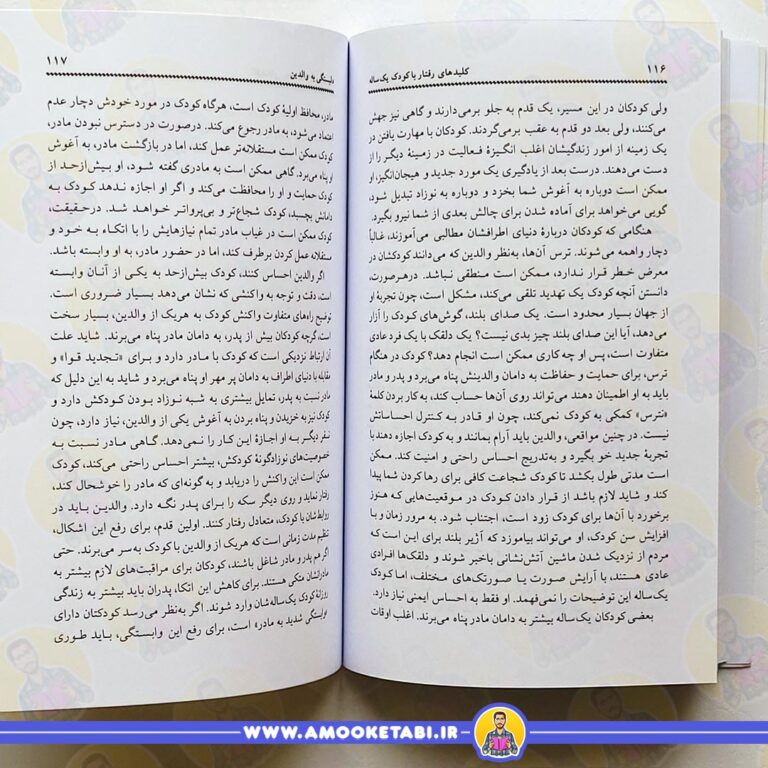 ۱۱۶
کلیدهای رفتار با کودک یک‌ساله
ولی کودکان در این مسیر، یک قدم به جلو برمی‌دارند و گاهی نیز جهش
می‌کنند، ولی بعد دو قدم به عقب برمی‌گردند. کودکان با مهارت یافتن در
یک زمینه از امور زندگیشان اغلب انگیزهٔ فعالیت در زمینهٔ دیگر را از
دست می‌دهند. درست بعد از یادگیری یک مورد جدید و هیجان‌انگیز، او
ممکن است دوباره به آغوش شما بخزد و دوباره به نوزاد تبدیل شود،
گویی می‌خواهد برای آماده شدن برای چالش بعدی از شما نیرو بگیرد.
هنگامی که کودکان دربارهٔ دنیای اطرافشان مطالبی می‌آموزند، غالباً
دچار واهمه می‌شوند. ترس آن‌ها، به‌نظر والدین که می‌دانند کودکشان در
معرض خطر قرار ندارد، ممکن است منطقی نباشد. درهرصورت،
دانستن آنچه کودک یک تهدید تلقی می‌کند، مشکل است، چون تجربهٔ او
از جهان بسیار محدود است. یک صدای بلند، گوش‌های کودک را آزار
می‌دهد، آیا این صدای بلند چیز بدی نیست؟ یک دلقک با یک فرد عادی
متفاوت است، پس او چه کاری ممکن است انجام دهد؟ کودک در هنگام
ترس، برای حمایت و حفاظت به دامان والدینش پناه می‌برد و پدر و مادر
باید به او اطمینان دهند می‌تواند روی آن‌ها حساب کند، به کار بردن کلمهٔ
«نترس» کمکی به کودک نمی‌کند، چون او قادر به کنترل احساساتش
نیست. در چنین مواقعی، والدین باید آرام بمانند و به کودک اجازه دهند با
تجربهٔ جدید خو بگیرد و به‌تدریج احساس راحتی و امنیت کند. ممکن
است مدتی طول بکشد تا کودک شجاعت کافی برای رها کردن شما پیدا
کند و شاید لازم باشد از قرار دادن کودک در موقعیت‌هایی که هنوز
برخورد با آن‌ها برای کودک زود است، اجتناب شود. به مرور زمان و با
افزایش سن کودک، او می‌تواند بیاموزد که آژیر بلند برای این است که
مردم از نزدیک شدن ماشین آتش‌نشانی باخبر شوند و دلقک‌ها افرادی
عادی هستند، با آرایش صورت یا صورتک‌های مختلف، اما کودک
یک‌ساله این توضیحات را نمی‌فهمد. او فقط به احساس ایمنی نیاز دارد.
بعضی کودکان یک‌ساله بیشتر به دامان مادر پناه می‌برند. اغلب اوقات
۱۱۷
وابستگی به والدین
مادر، محافظ اولیهٔ کودک است، هرگاه کودک در مورد خودش دچار عدم
اعتماد می‌شود، به مادر رجوع می‌کند. درصورت در دسترس نبودن مادر،
کودک ممکن است مستقلانه‌تر عمل کند، اما در بازگشت مادر، به آغوش
او پناه می‌برد. گاهی ممکن است به مادری گفته شود، او بیش‌ازحد از
کودک حمایت و او را محافظت می‌کند و اگر او اجازه ندهد کودک به
دامانش بچسبد، کودک شجاع‌تر و بی‌پرواتر خواهد شد. درحقیقت،
کودک ممکن است در غیاب مادر تمام نیازهایش را با اتکاء به خود و
مستقلانه عمل کردن برطرف کند، اما در حضور مادر، به او وابسته باشد.
اگر والدین احساس کنند، کودک بیش‌ازحد به یکی از آنان وابسته
است، دقت و توجه به واکنشی که نشان می‌دهد بسیار ضروری است.
توضیح راه‌های متفاوت واکنش کودک به هریک از والدین، بسیار سخت
است، گرچه کودکان بیش از پدر، به دامان مادر پناه می‌برند. شاید علت
آن ارتباط نزدیکی است که کودک با مادر دارد و برای «تجدید قوا» و
مقابله با دنیای اطراف به دامان پر مهر او پناه می‌برد و شاید به این دلیل که
مادر نسبت به پدر، تمایل بیشتری به شبه نوزاد بودن کودکش دارد و
کودک نیز به خزیدن و پناه بردن به آغوش یکی از والدین، نیاز دارد، چون
نفر دیگر به او اجازهٔ این کار را نمی‌دهد. گاهی مادر نسبت به
خصوصیت‌های نوزادگونهٔ کودکش، بیشتر احساس راحتی می‌کند، کودک
ممکن است این واکنش را دریابد و به گونه‌ای که مادر را خوشحال کند،
رفتار نماید و روی دیگر سکه را برای پدر نگه دارد. والدین باید در
روابطشان با کودک، متعادل رفتار کنند. اولین قدم، برای رفع این اشکال،
تنظیم مدت زمانی است که هریک از والدین با کودک به‌سر می‌برند. حتی
اگر هم پدر و مادر شاغل باشند، کودکان برای مراقبت‌های لازم بیشتر به
مادرانشان متکی هستند. برای کاهش این اتکا، پدران باید بیشتر به زندگی
روزانهٔ کودک یک‌ساله‌شان وارد شوند. اگر به‌نظر می‌رسد کودکتان دارای
«وابستگی شدید به مادر» است، برای رفع این وابستگی، باید طوری
WWW.AMOOKETABI.IR